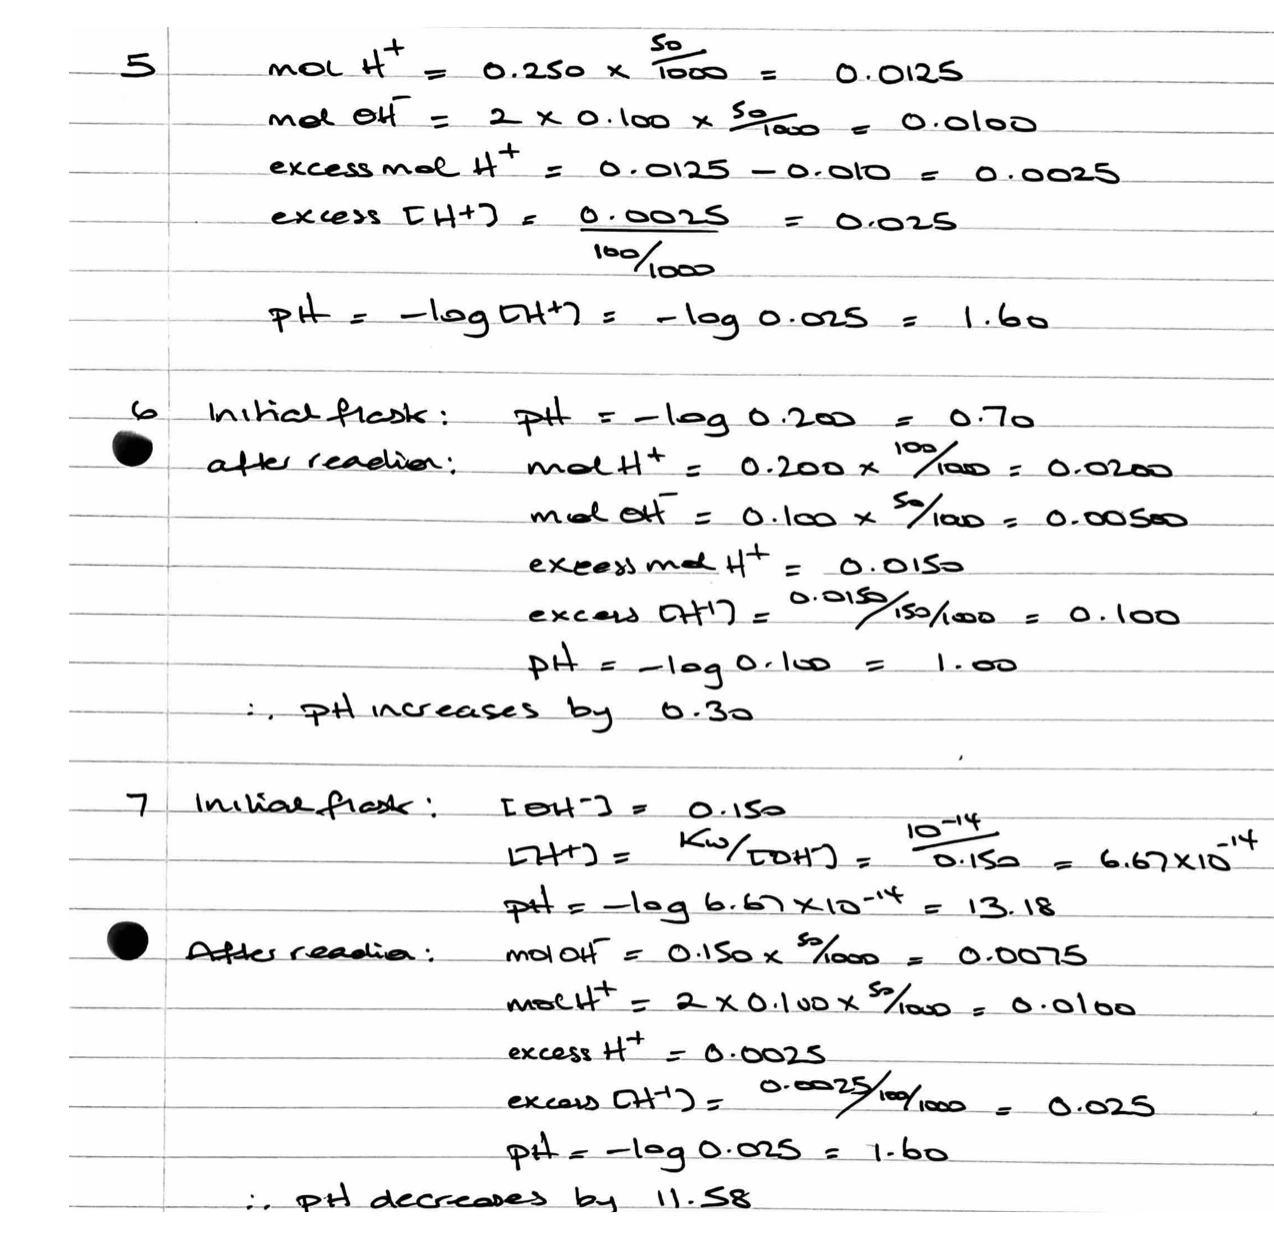 5 mol H⁺ = 0.250 × 50/1000 = 0.0125
mol OH⁻ = 2 × 0.100 × 50/1000 = 0.0100
excess mol H⁺ = 0.0125 – 0.010 = 0.0025
excess [H+] = 0.0025 / 100/1000 = 0.025
pH = -log[H+] = -log 0.025 = 1.60
6 Initial flask: pH = -log 0.200 = 0.70
after reaction: mol H⁺ = 0.200 × 100/1000 = 0.0200
mol OH⁻ = 0.100 × 50/1000 = 0.00500
excess mol H⁺ = 0.0150
excess [H+] = 0.0150/150/1000 = 0.100
pH = -log 0.100 = 1.00
∴ pH increases by 0.30
7 Initial flask: [OH⁻] = 0.150
[H+] = Kw/[OH⁻] = 10⁻¹⁴/0.150 = 6.67×10⁻¹⁴
pH = -log 6.67×10⁻¹⁴ = 13.18
After reaction: mol OH⁻ = 0.150 × 50/1000 = 0.0075
mol H⁺ = 2 × 0.100 × 50/1000 = 0.0100
excess H⁺ = 0.0025
excess [H+] = 0.0025/100/1000 = 0.025
pH = -log 0.025 = 1.60
∴ pH decreases by 11.58